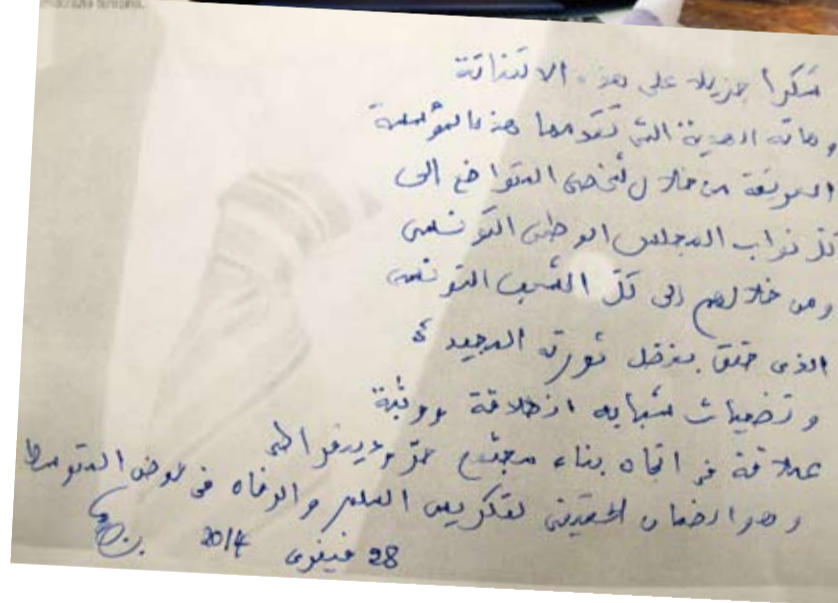 شكرا جزيلا على هذه الالتفاتة
وهاته الهدية التي تقدمها هذه المؤسسة
العريقة من خلال شخصي المتواضع إلى
كل نواب المجلس الوطني التونسي
ومن خلالهم إلى كل الشعب التونسي
الذي حقق بفضل ثورته المجيدة
وتضحيات شبابه انطلاقة ووثبة
عملاقة في اتجاه بناء مجتمع حرّ وديمقراطي
وهو الضمان الحقيقي لتكريس السلم والرفاه في حوض المتوسط
28 فيفري 2014